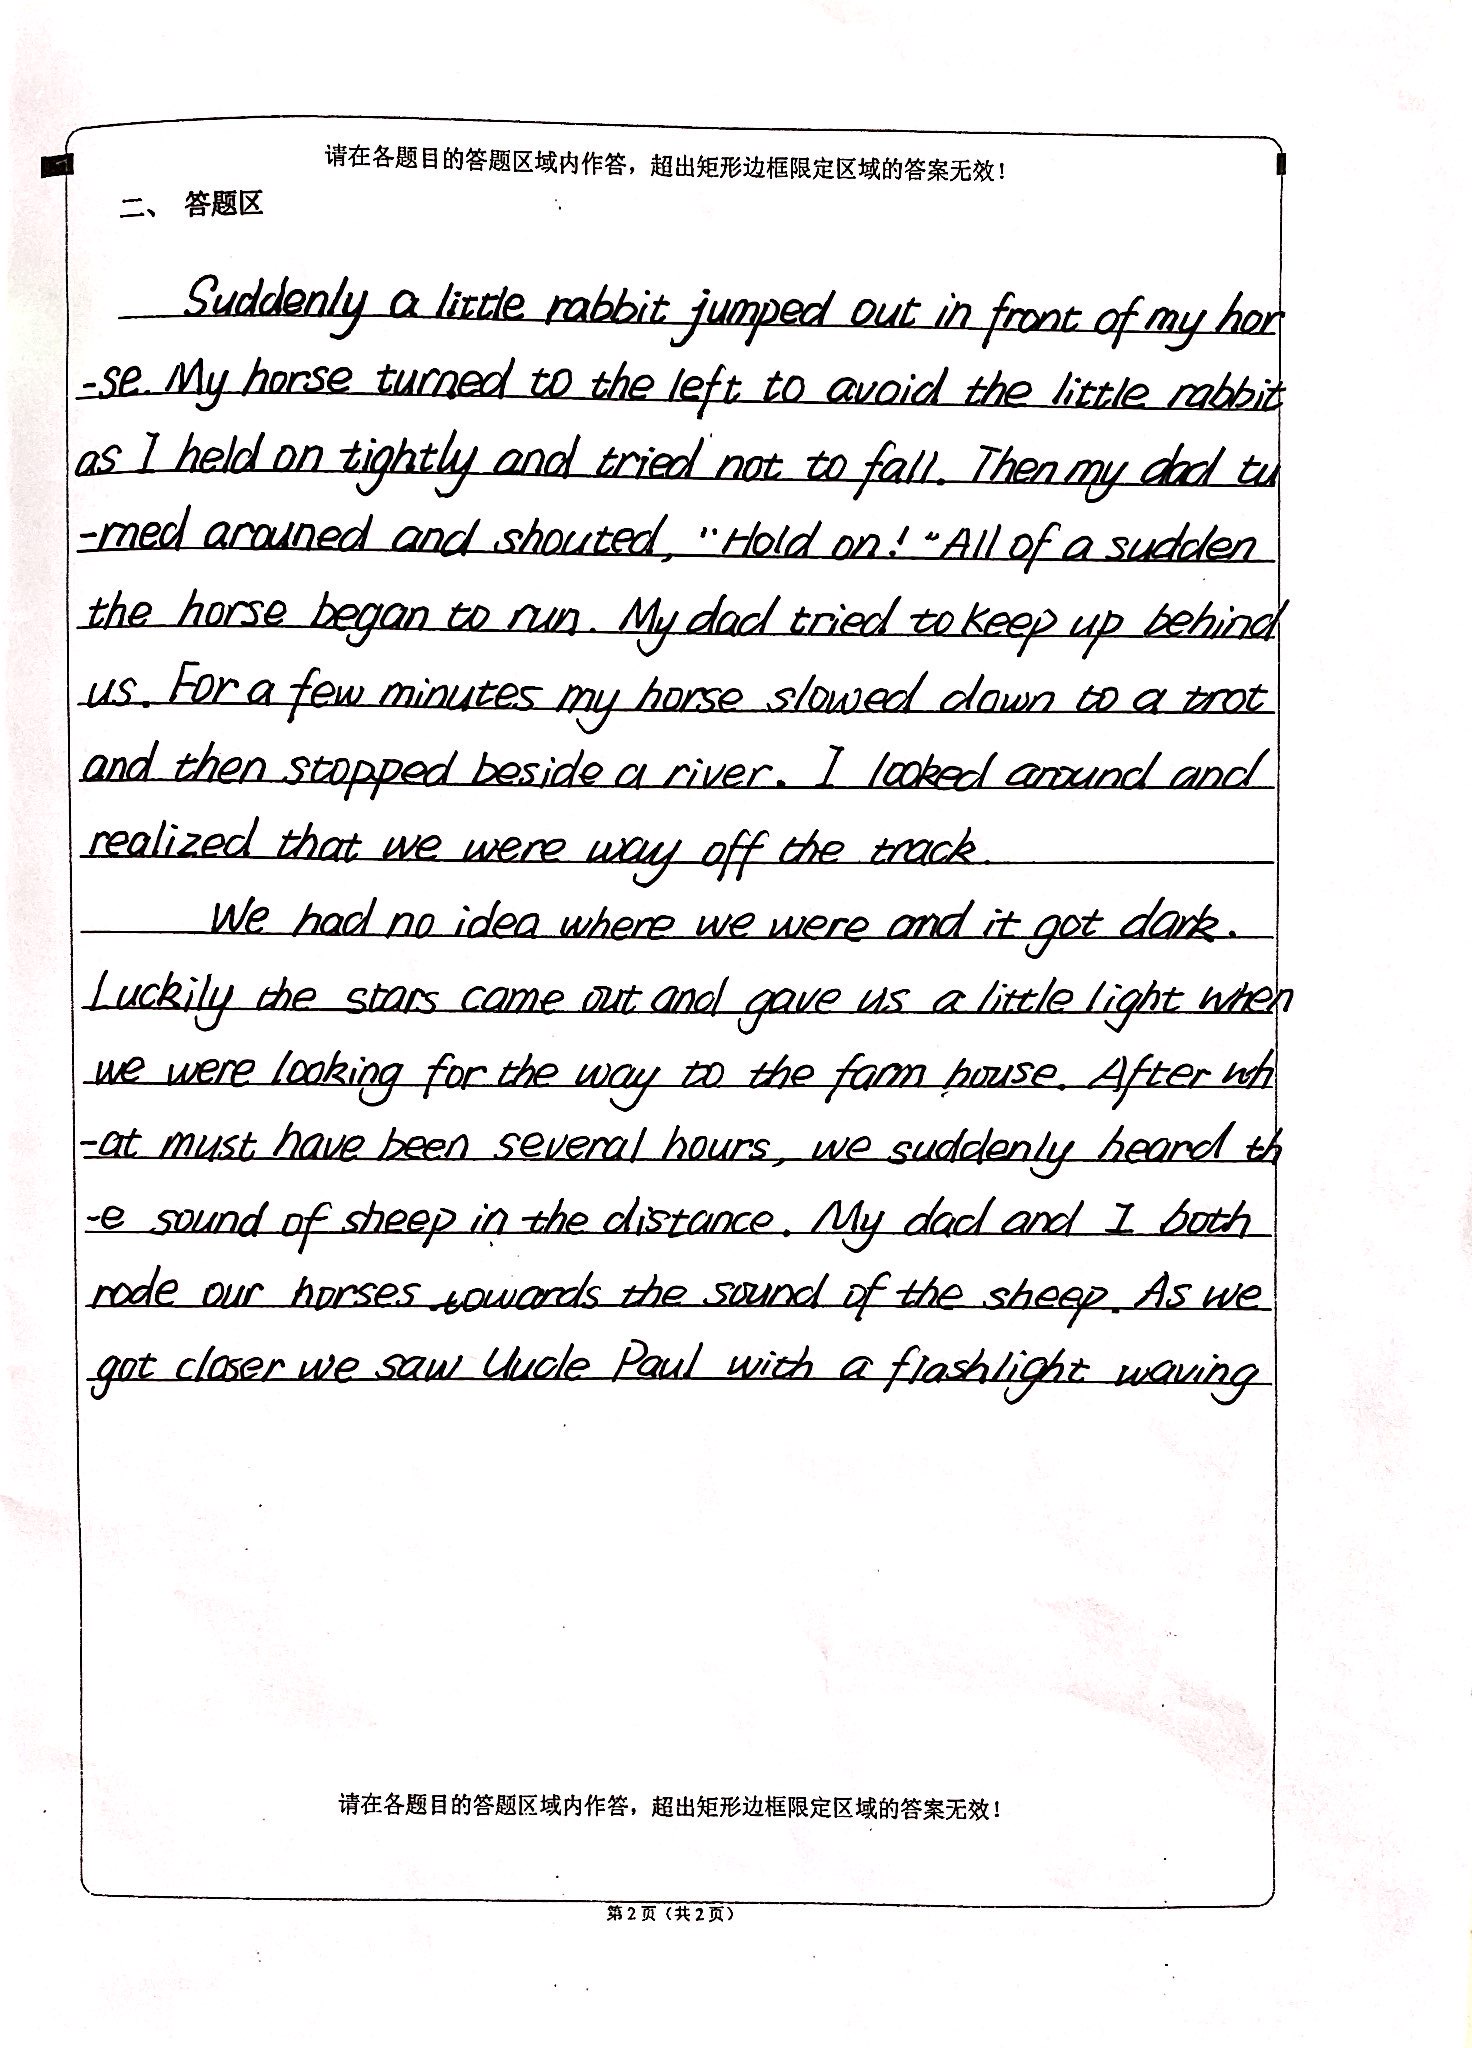 请在各题目的答题区域内作答，超出矩形边框限定区域的答案无效！
二、 答题区
Suddenly a little rabbit jumped out in front of my hor
-se. My horse turned to the left to avoid the little rabbit
as I held on tightly and tried not to fall. Then my dad tu
-rned arouned and shouted, "Hold on!" All of a sudden
the horse began to run. My dad tried to keep up behind
us. For a few minutes my horse slowed down to a trot
and then stopped beside a river. I looked around and
realized that we were way off the track.
We had no idea where we were and it got dark.
Luckily the stars came out and gave us a little light when
we were looking for the way to the farm house. After wh
-at must have been several hours, we suddenly heard th
-e sound of sheep in the distance. My dad and I both
rode our horses towards the sound of the sheep. As we
got closer we saw Uncle Paul with a flashlight waving
请在各题目的答题区域内作答，超出矩形边框限定区域的答案无效！
第2页（共2页）